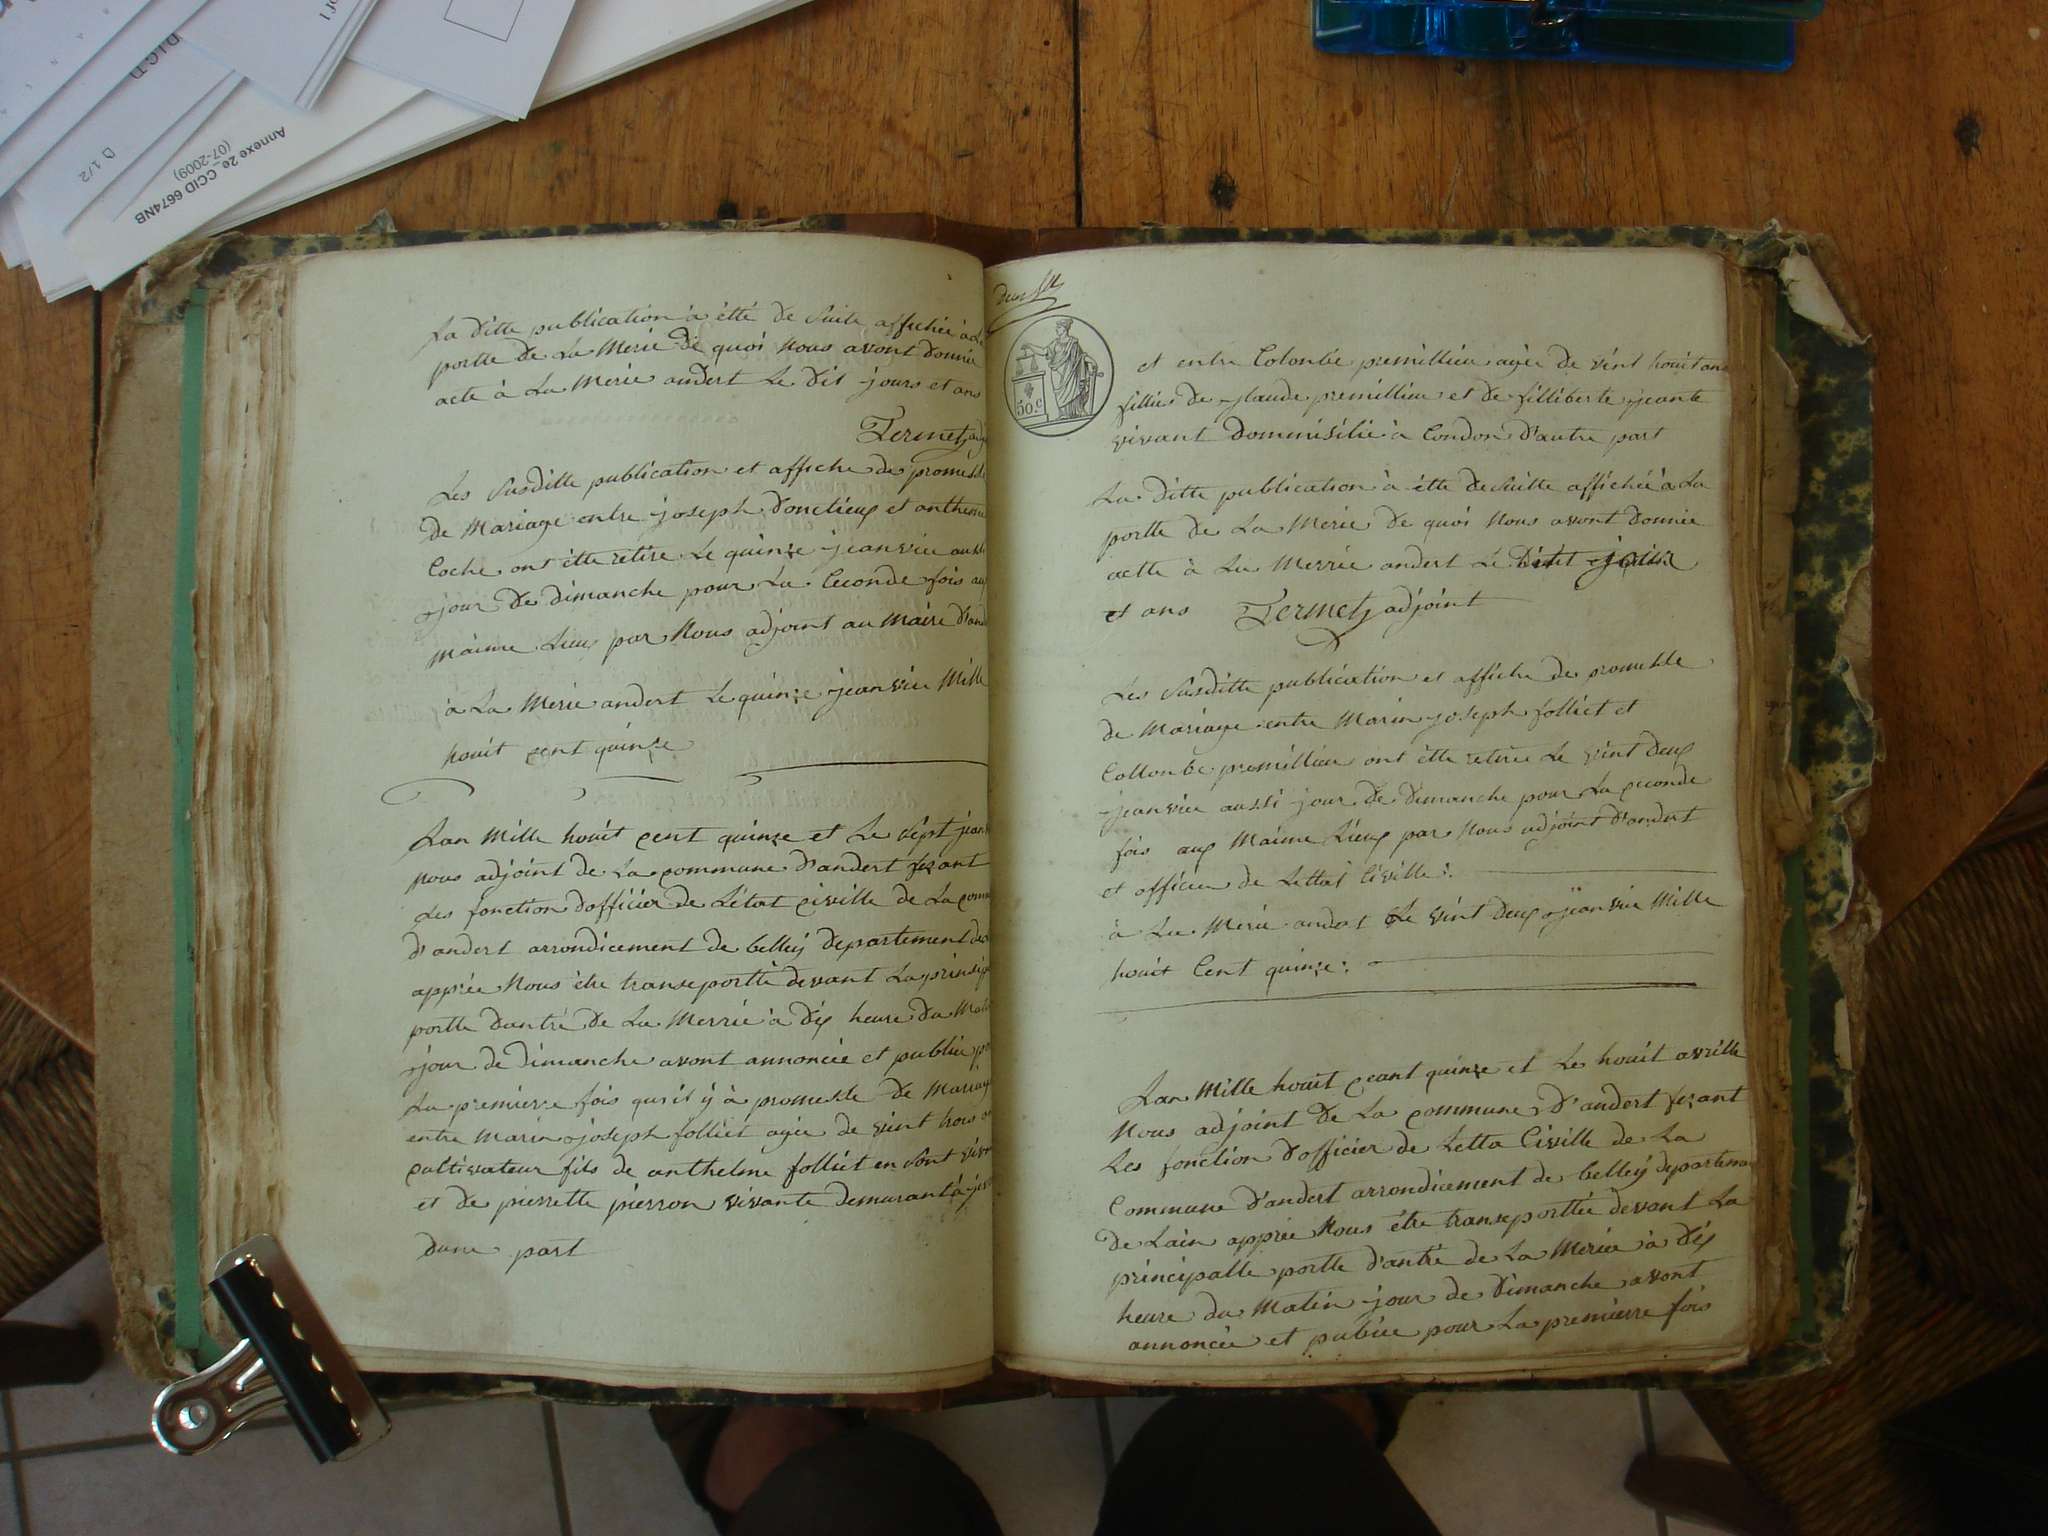 of 1
DICTI
D 1/2
Annexe 2e_CCID 6674NB
(07-2009)
La ditte publication à étté de suite affichée à la
portte de La Merie de quoi Nous avont donnée
acte à La Merie andert Le dit jours et ans
Termet adj
Les susditte publication et affiche de promesse
de Mariage entre joseph donctieux et anthelme
Coche ont étté retiré Le quinze jeanvié aussi
jour de dimanche pour La Ceconde fois au
maime Lieux par Nous adjoint au Maire d'and
à La Merie andert Le quinze jeanvié Mille
houit cent quinze
Lan Mille houit cent quinze et Le sept jean
Nous adjoint de La commune d'andert fezant
Les fonction d'officier de Létat civille de La comm
d'andert arrondicement de belley departement de
apprée Nous étre transeportté devant La prinsip
portte dantré de La Merrie à dix heure du Mat
jour de dimanche avont annoncée et publiée po
La premierre fois qu'il ÿ à promesse de Mariag
entre Marin joseph folliet agée de vint trois an
cultivateur fils de anthelme folliet en sont viv
et de pierrette pierron vivante demurant à
dune part
50.c
et entre Colombe premillieu agée de vint houit ans
fillies de glaude premillieu et de filliberte jeante
vivant dommisilié à Condon d'autre part
La ditte publication à étte de suitte affichée à La
portte de La Merie de quoi Nous avont donnée
actte à La Merrie andert Le dit jour
et ans Termet adjoint
Les susditte publication et affiche de promesse
de Mariage entre Marin joseph folliet et
Collombe premillieu ont étte retirée Le vint deux
jeanvié aussi jour de dimanche pour La ceconde
fois aux Maime Lieux par Nous adjoint d'andert
et officier de Lettat Civille
à La Merie andert Le vint deux jeanvié Mille
houit Cent quinze
Lan Mille houit ceant quinze et Les houit avrille
Nous adjoint de La commune d'andert fezant
Les fonction d'officier de Letta Civille de La
Commune d'andert arrondicement de belley departement
de Lain apprée Nous étre transeporttée devant La
principalle portte d'antré de La Meriée à dix
heure du Matin jour de dimanche avont
annoncée et pubiée pour La premierre fois